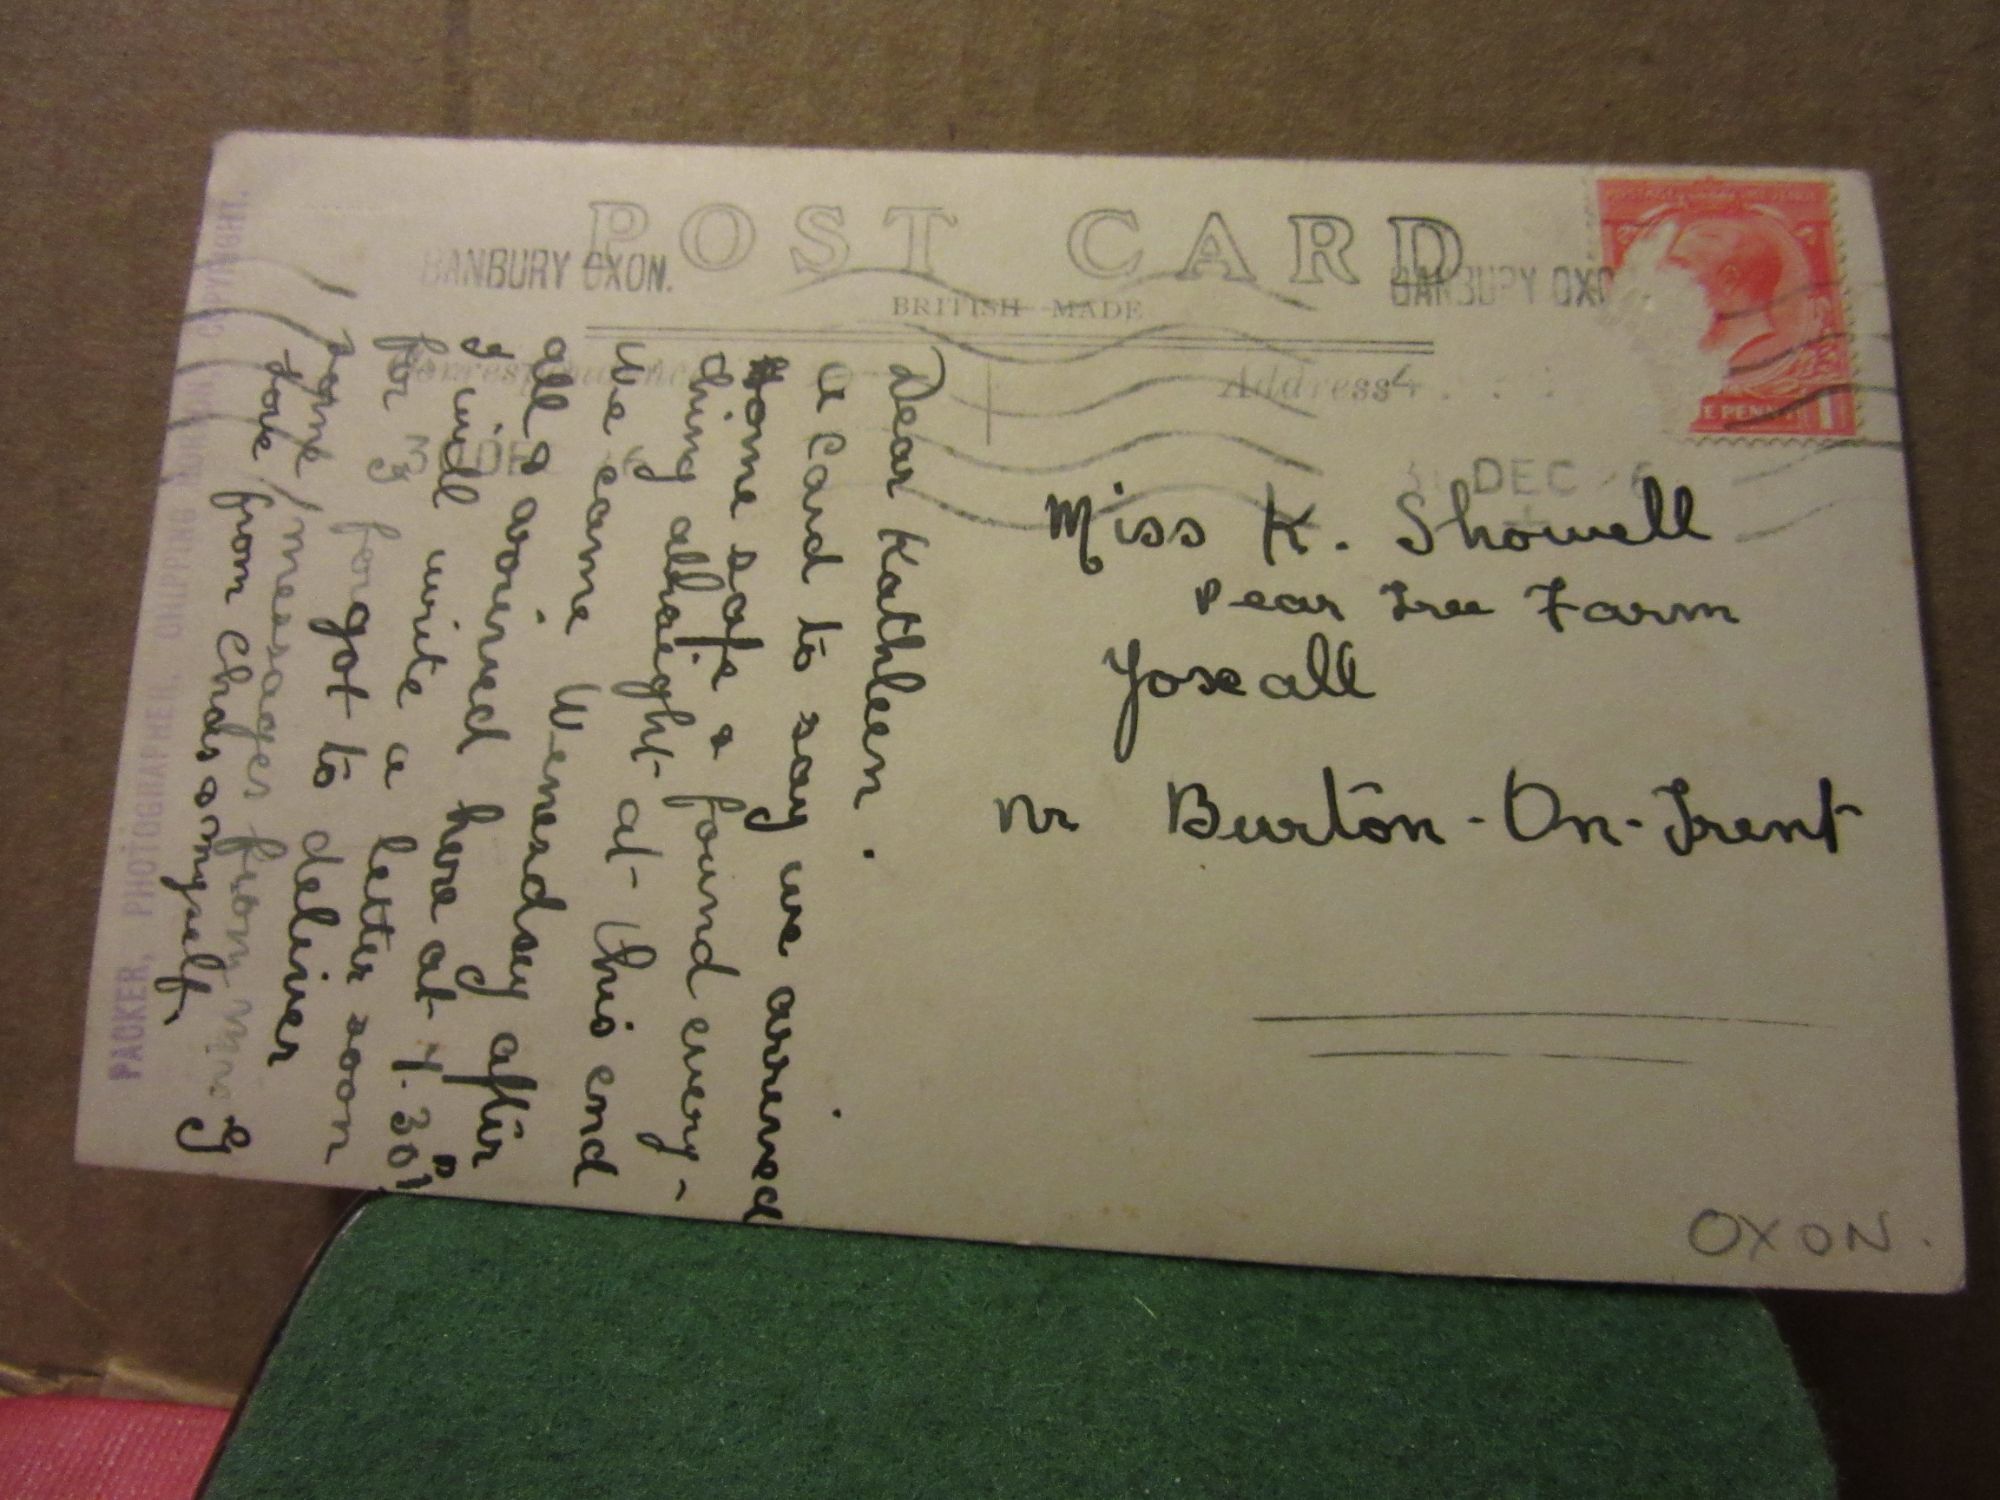 POST CARD
BRITISH MADE
BANBURY OXON.
BANBURY OXO
Correspondence
Address
DEC
DEC
E PENNY 1
Miss K. Showell
Pear Tree Farm
Yoxall
Nr Burton-On-Trent
OXON.
Dear Kathleen.
A Card to say we arrived
home safe & found every-
thing allraight at this end
We came Wenesdsey after
all & arrived here at 4.30 P
I will write a letter soon
for I forgot to deliver
some messages from Mrs G
love from Chas & myself.
PACKER, PHOTOGRAPHER, CHIPPING NORTON, COPYRIGHT.